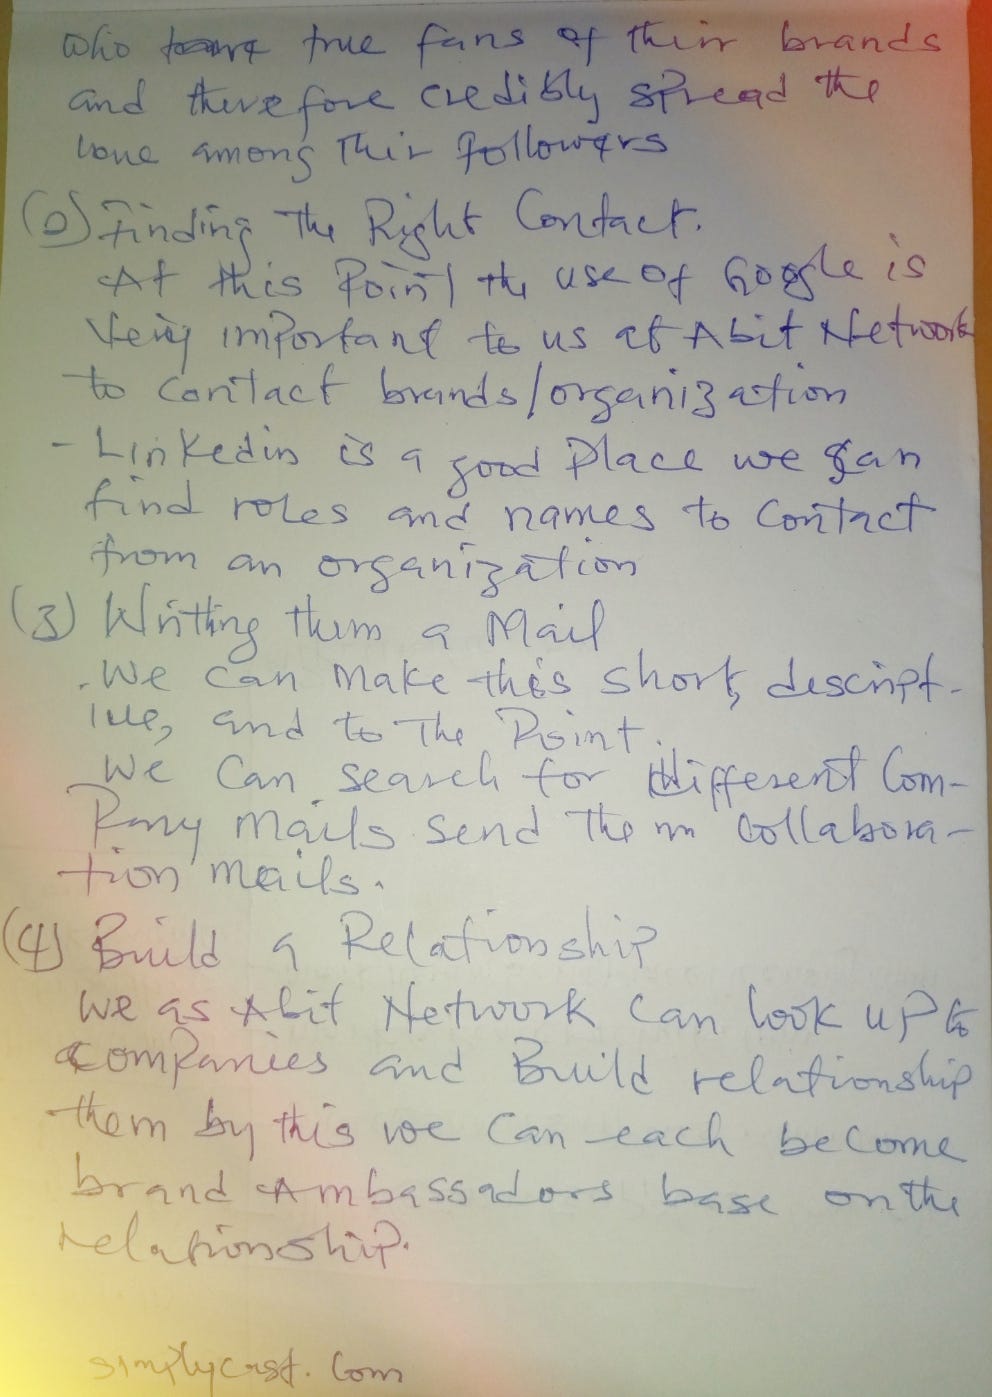 who are true fans of their brands
and therefore credibly spread the
love among their followers
(2) Finding The Right Contact.
At this Point the use of Google is
Very important to us at Abit Network
to contact brands/organization
- Linkedin is a good place we can
find roles and names to contact
from an organization
(3) Writing them a Mail
. We can make this short, descript-
ive, and to The Point.
We can search for different Com-
pany mails send them collabora-
tion mails.
(4) Build a Relationship
We as Abit Network can look up to
companies and Build relationship
them by this we can each become
brand Ambassadors base on the
relationship.
simplycast.com